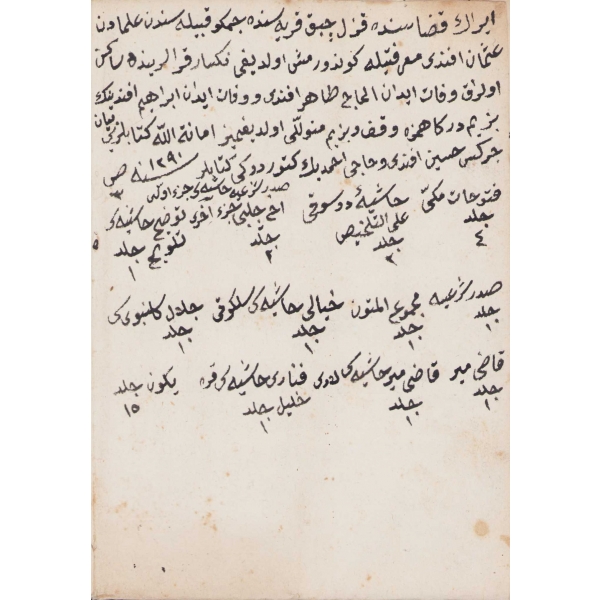 ایراك قضاسنده قزل چبق قریه سنده جمكو قبیله سندن علمادن
عثمان افندی معرفتیله كوندورمش اولدیغی فكسار قرالرینده ساكن
اولارق وفات ایدان الحاج طاهر افندی و وفات ایدان ابراهیم افندینك
بزیم دركاهمزه وقف و بزیم متولّی اولدیغیمیز امانة اللّه كتابلرینی بیان
چركس حسین افندی و حاجی احمد بك كتوردوكی كتابلر سنه ١٢٩٠ ص ٣
فتوحات مكّی جلد ٤
حاشیهٔ دوسوقی علی التلخیص جلد ٢
صدر شرعیه حاشیه ی جزء اولكی اخی جلبی جزء آخری جلد ٢
توضیح حاشیه ی تلویح جلد ١
صدر شرعیه جلد ١
مجموع المتون جلد ١
خیالی حاشیه ی سلكوتی جلد ١
جلال كلنبوی كی جلد ١
قاضی میر جلد ١
قاضی میر حاشیه ی لاری جلد ١
فناری حاشیه ی قره خلیل جلد ١
یكون جلد ١٥